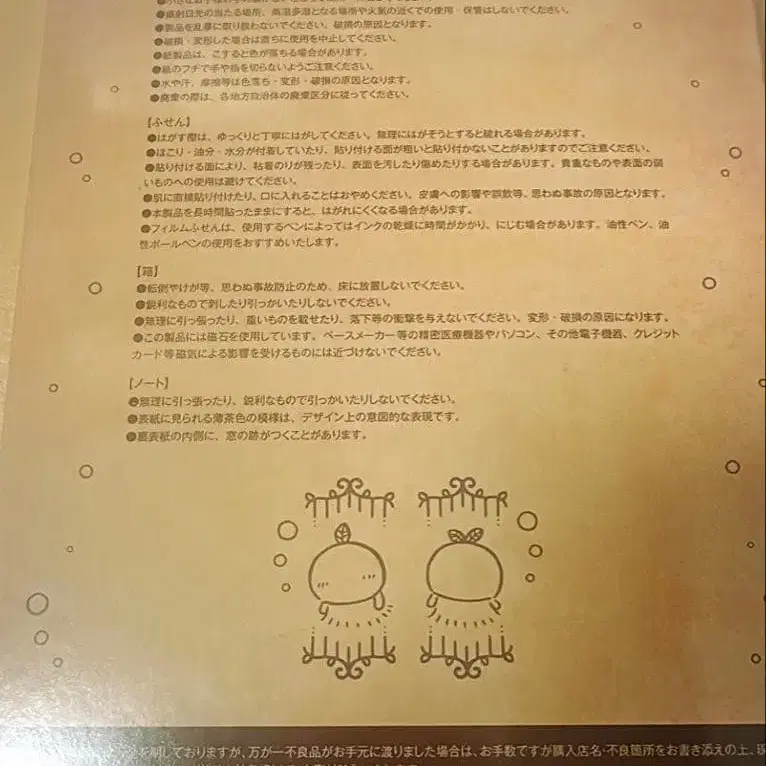 ●直射日光の当たる場所、高温多湿となる場所や火気の近くでの使用・保管はしないでください。
●製品を乱暴に取り扱わないでください。破損の原因となります。
●破損・変形した場合は直ちに使用を中止してください。
●紙製品は、こすると色が落ちる場合があります。
●紙のフチで手や指を切らないようご注意ください。
●水や汗、摩擦等は色落ち・変形・破損の原因となります。
●廃棄の際は、各地方自治体の廃棄区分に従ってください。
【ふせん】
●はがす際は、ゆっくりと丁寧にはがしてください。無理にはがそうとすると破れる場合があります。
●ほこり・油分・水分が付着していたり、貼り付ける面が粗いと貼り付かないことがありますのでご注意ください。
●貼り付ける面により、粘着のりが残ったり、表面を汚したり傷めたりする場合があります。貴重なものや表面の弱
いものへの使用は避けてください。
●肌に直接貼り付けたり、口に入れることはおやめください。皮膚への影響や誤飲等、思わぬ事故の原因となります。
●本製品を長時間貼ったままにすると、はがれにくくなる場合があります。
●フィルムふせんは、使用するペンによってはインクの乾燥に時間がかかり、にじむ場合があります。油性ペン、油
性ボールペンの使用をおすすめいたします。
【箱】
●転倒やけが等、思わぬ事故防止のため、床に放置しないでください。
●鋭利なもので刺したり引っかいたりしないでください。
●無理に引っ張ったり、重いものを載せたり、落下等の衝撃を与えないでください。変形・破損の原因になります。
●この製品には磁石を使用しています。ペースメーカー等の精密医療機器やパソコン、その他電子機器、クレジット
カード等磁気による影響を受けるものには近づけないでください。
【ノート】
●無理に引っ張ったり、鋭利なもので引っかいたりしないでください。
●表紙に見られる薄茶色の模様は、デザイン上の意図的な表現です。
●裏表紙の内側に、窓の跡がつくことがあります。
しておりますが、万が一不良品がお手元に渡りました場合は、お手数ですが購入店名・不良箇所をお書き添えの上、現